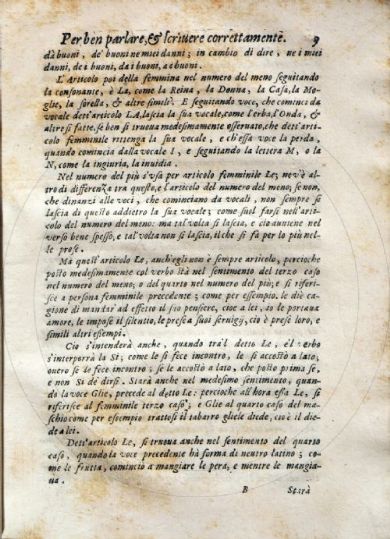 Per ben parlare, & scriuere correttamente. 9
dà buoni, de' buoni ne miei danni; in cambio di dire, ne i miei
danni, de i buoni, da i buoni, a e buoni.
L'Articolo poi della femmina nel numero del meno seguitando
la consonante, è La, come la Reina, la Donna, la Casa, la Mo-
glie, la sorella, & altre simili. E seguitando voce, che cominci da
vocale dett'articolo LA, lascia la sua vocale, come l'erba, l'Onda, &
altre sì fatte, se ben si truoua medesimamente osseruato, che dett'arti-
colo femminile ritenga la sua vocale, e ch'essa voce la perda,
quando comincia dalla vocale I, e seguitando la lettera M, o la
N, come la ingiuria, la inuidia.
Nel numero del più s'vsa per articolo femminile Le; nov'è al-
tro di differenza tra questo, e l'articolo del numero del meno; se non,
che dinanzi alle voci, che cominciano da vocali, non sempre si
lascia di questo addietro la sua vocale; come suol farsi nell'arti-
colo del numero del meno: ma tal volta si lascia, e ciò auuiene nel
verso bene spesso, e tal volta non si lascia, il che si fà per lo più nel-
le prose.
Ma quest'articolo Le, anch'egli non è sempre articolo, percioche
posto medesimamente col verbo stà nel sentimento del terzo caso
nel numero del meno; o del quarto nel numero del più; e si riferi-
sce a persona femminile precedente; come per essempio. le diè ca-
gione di mandar ad effetto il suo pensiere, cioè a lei, io le portaua
amore, le impose il silentio, le prese a suoi seruigij, ciò è prese loro, e
simili altri essempi.
Ciò s'intenderà anche, quando tra'l detto Le, e'l verbo
s'interporrà la Si; come le si fece incontro, le si accostò a lato,
ouero se le fece incontro; se le accostò a lato, che posto prima se,
e non Si dè dirsi. Starà anche nel medesimo sentimento, quan-
do la voce Glie, precede al detto Le: percioche all'hora essa Le, si
riferisce al femminile terzo caso; e Glie al quarto caso del ma-
schio come per essempio trattosi il tabarro gliele diede, cioè il die-
de a lei.
Dett'articolo Le, si truoua anche nel sentimento del quarto
caso, quando la voce precedente hà forma di neutro latino; co-
me le frutta, cominciò a mangiare le pera, e mentre le mangia-
ua.
B Starà